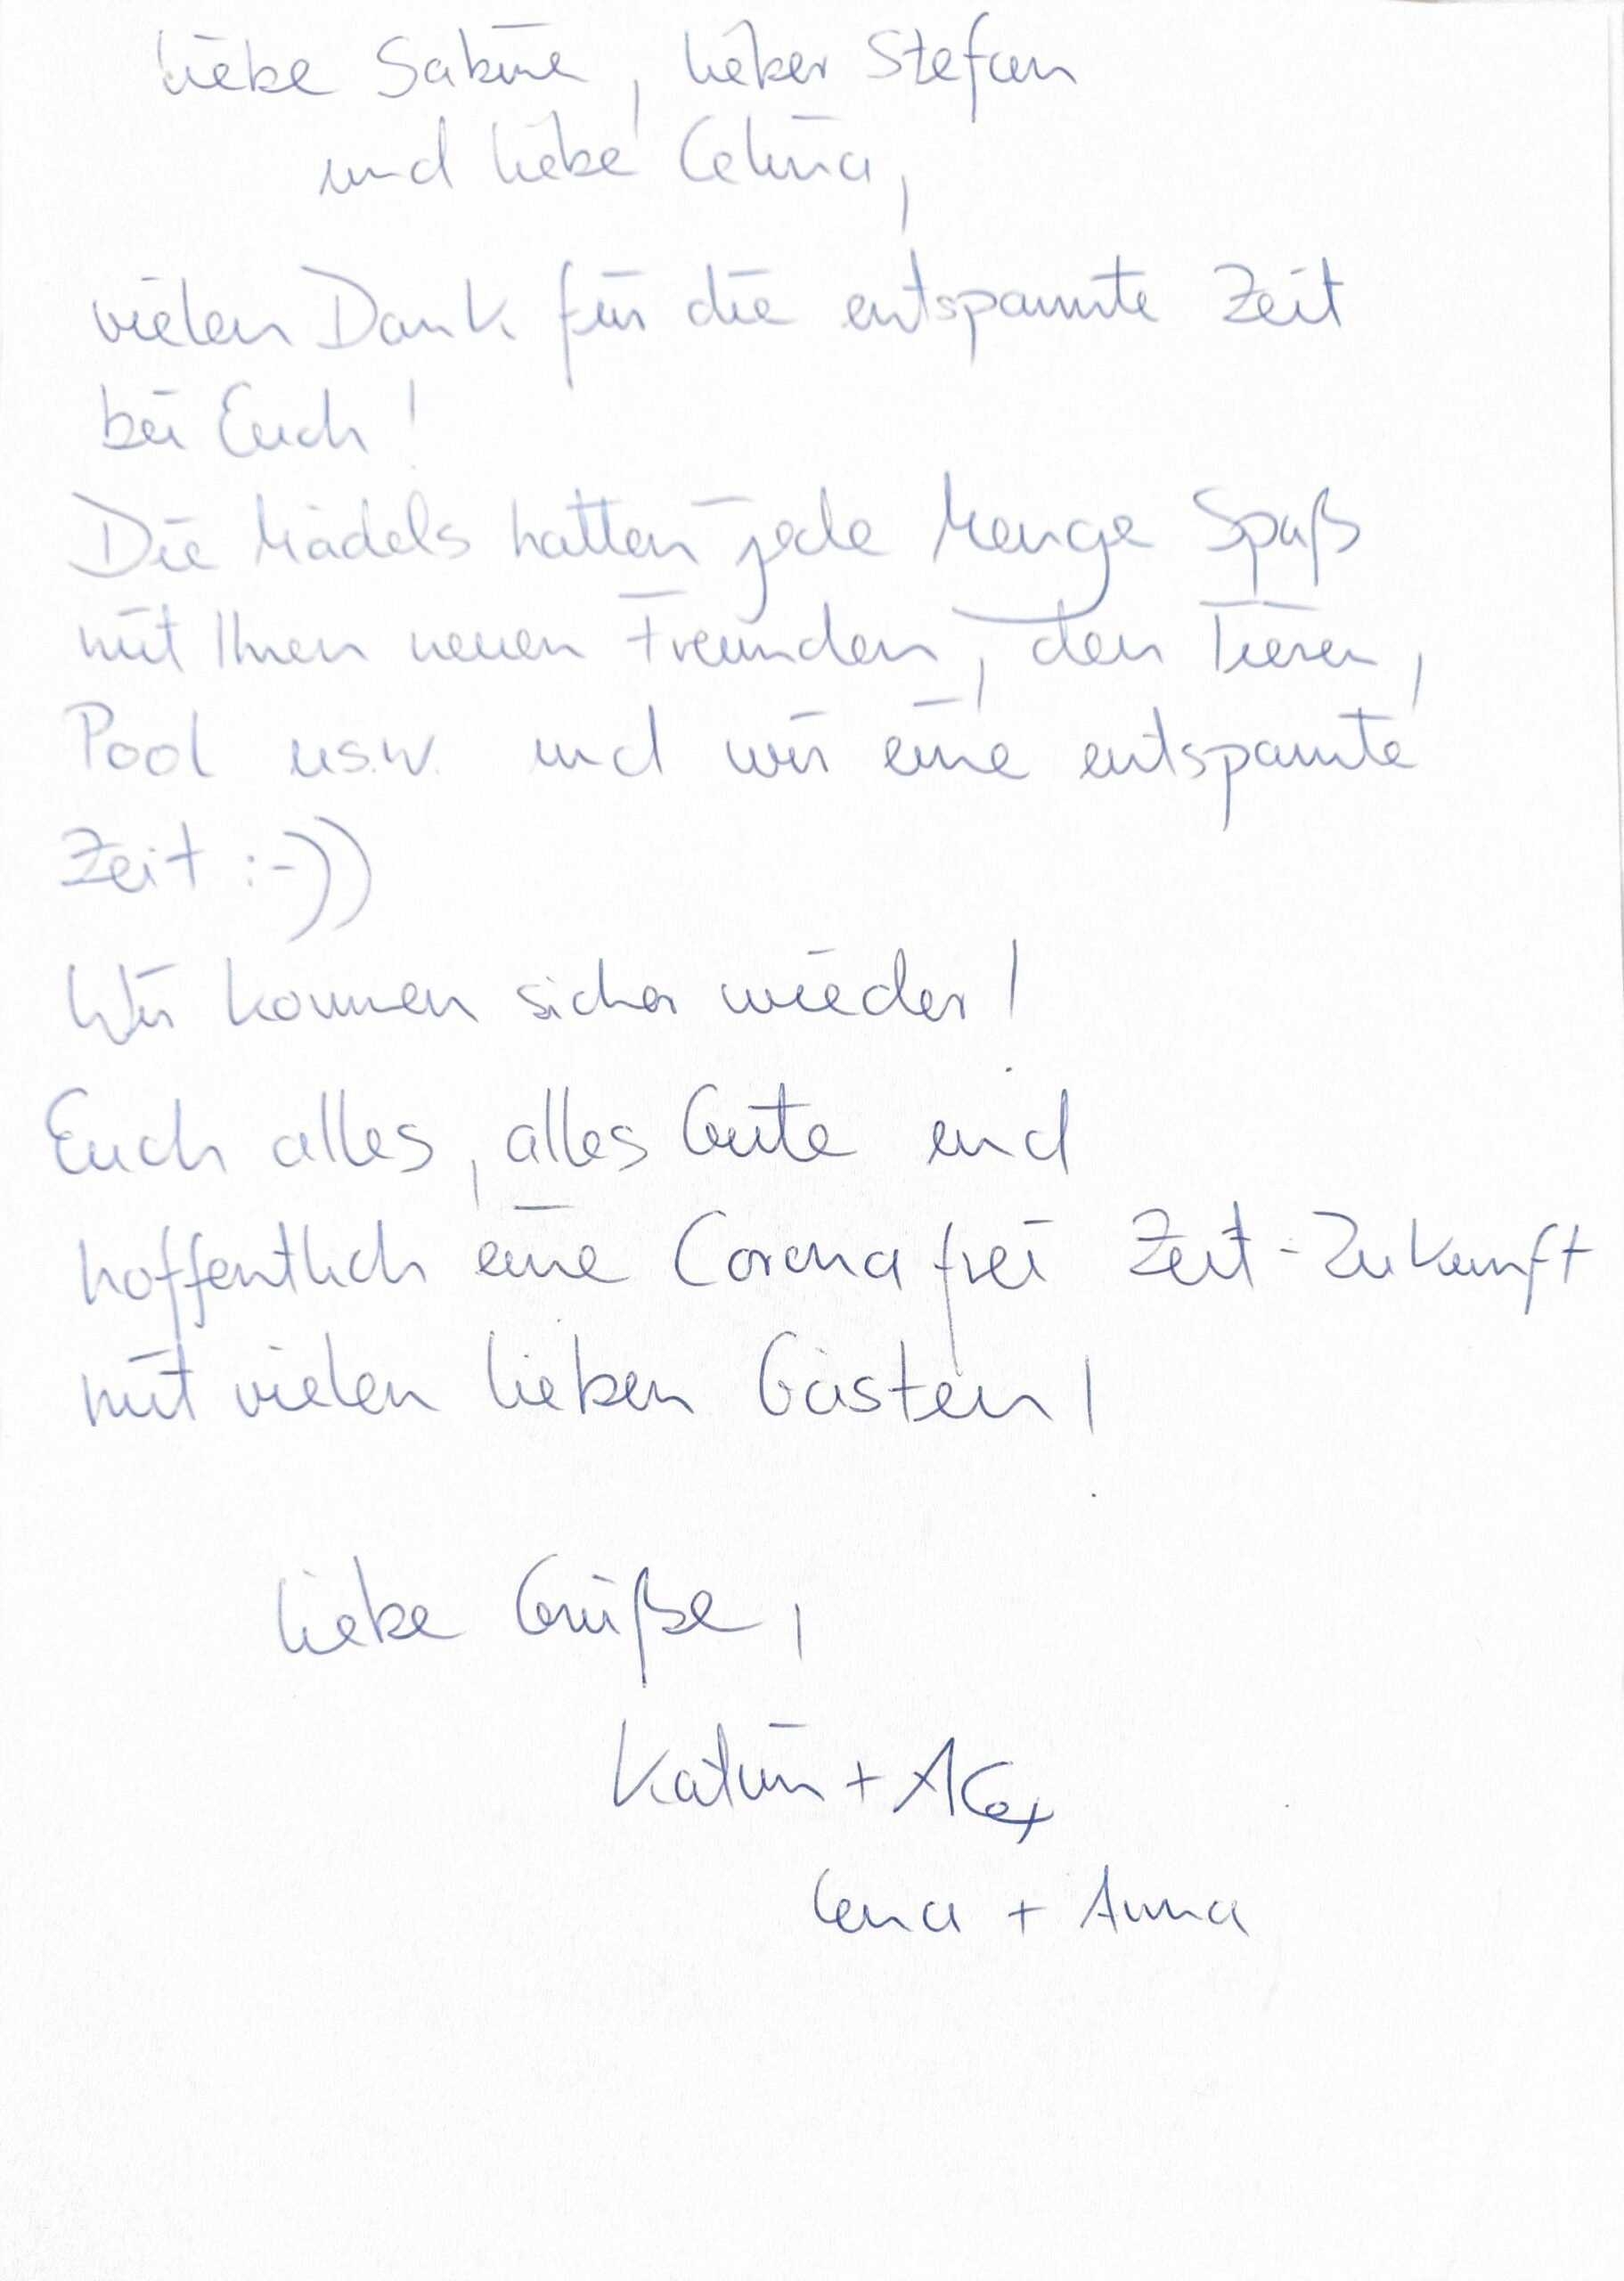 Liebe Sabine, lieber Stefan
und liebe Celina,
vielen Dank für die entspannte Zeit
bei Euch!
Die Mädels hatten jede Menge Spaß
mit Ihren neuen Freunden, den Tieren,
Pool usw. und wir eine entspannte
Zeit :-))
Wir kommen sicher wieder!
Euch alles, alles Gute und
hoffentlich eine Corona frei Zeit-Zukunft
mit vielen lieben Gästen!
Liebe Grüße,
Katrin + Alex
Lena + Anna